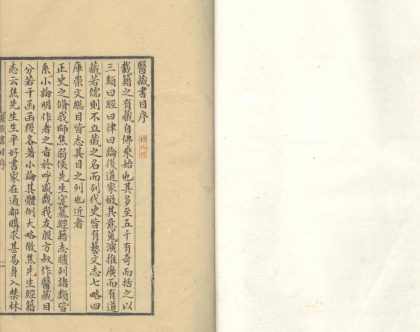 醫藏書目序
載籍之有藏自佛乘始也其多至五千有奇而括之以
三類曰經曰律曰論後道家倣其意蒐演推廣而有道
藏若儒則不立藏之名而列代史皆有藝文志七略四
庫崇文總目皆志其目之列也近者
正史之脩我師焦弱侯先生寔纂經籍志臚列諸類皆
系小論明作者之旨於呼盛哉我友殷方叔作醫藏目
分若干函函後各著小論其體例大略倣焦先生經籍
志云焦先生生平好書家在通都購求甚易身入禁林
醫藏書目序